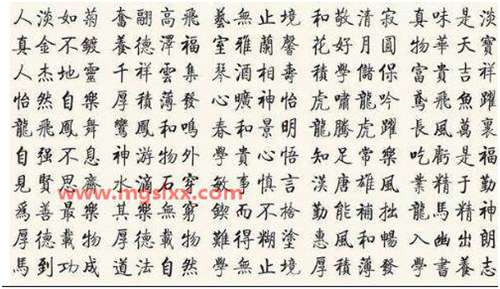 人淡如菊 奮翮高飛 藝無止境 和敬清寂 真味是淡
真金不鍍 養德澤福 室雅蘭馨 花好月圓 物華天寶
人杰地靈 千祥雲集 琴酒相壽 積學儲 富貴吉祥
怡然自樂 厚積薄發 心曠神怡 虎嘯龍吟 鳶飛魚躍
龍飛鳳舞 鸞鳳和鳴 春和景明 龍騰虎躍 長風萬里
自强不息 神游物外 學貴心悟 知足常樂 吃虧是福
見賢思齊 水滴石穿 敏事慎言 漢唐雄風 業精于勤
爲善最樂 其樂無窮 鍥而不捨 勤能補拙 龍馬精神
厚德載物 厚德載物 難得糊塗 惠風和暢 入幽出朗
馬到功成 道法自然 學無止境 厚積薄發 學書養志
www.mgslxx.com